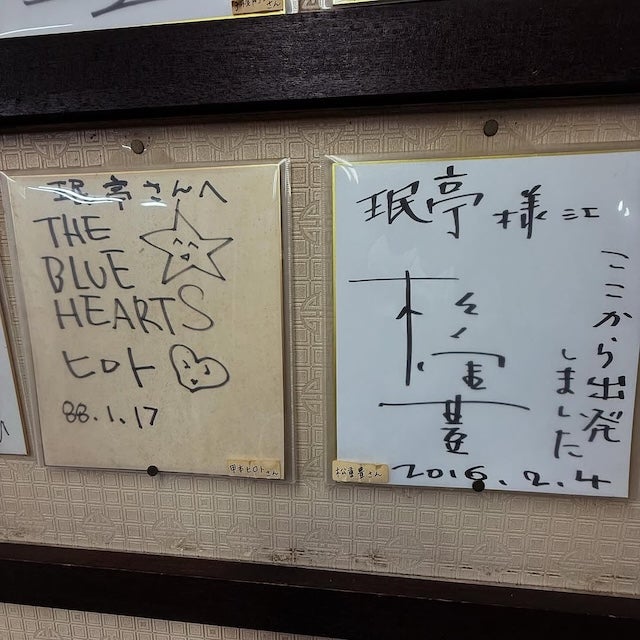 珉亭さんへ
THE
BLUE
HEARTS
ヒロト
88.1.17
甲本ヒロトさん
珉亭様江
ここから出発
しました
松重豊
2016.2.4
松重豊さん